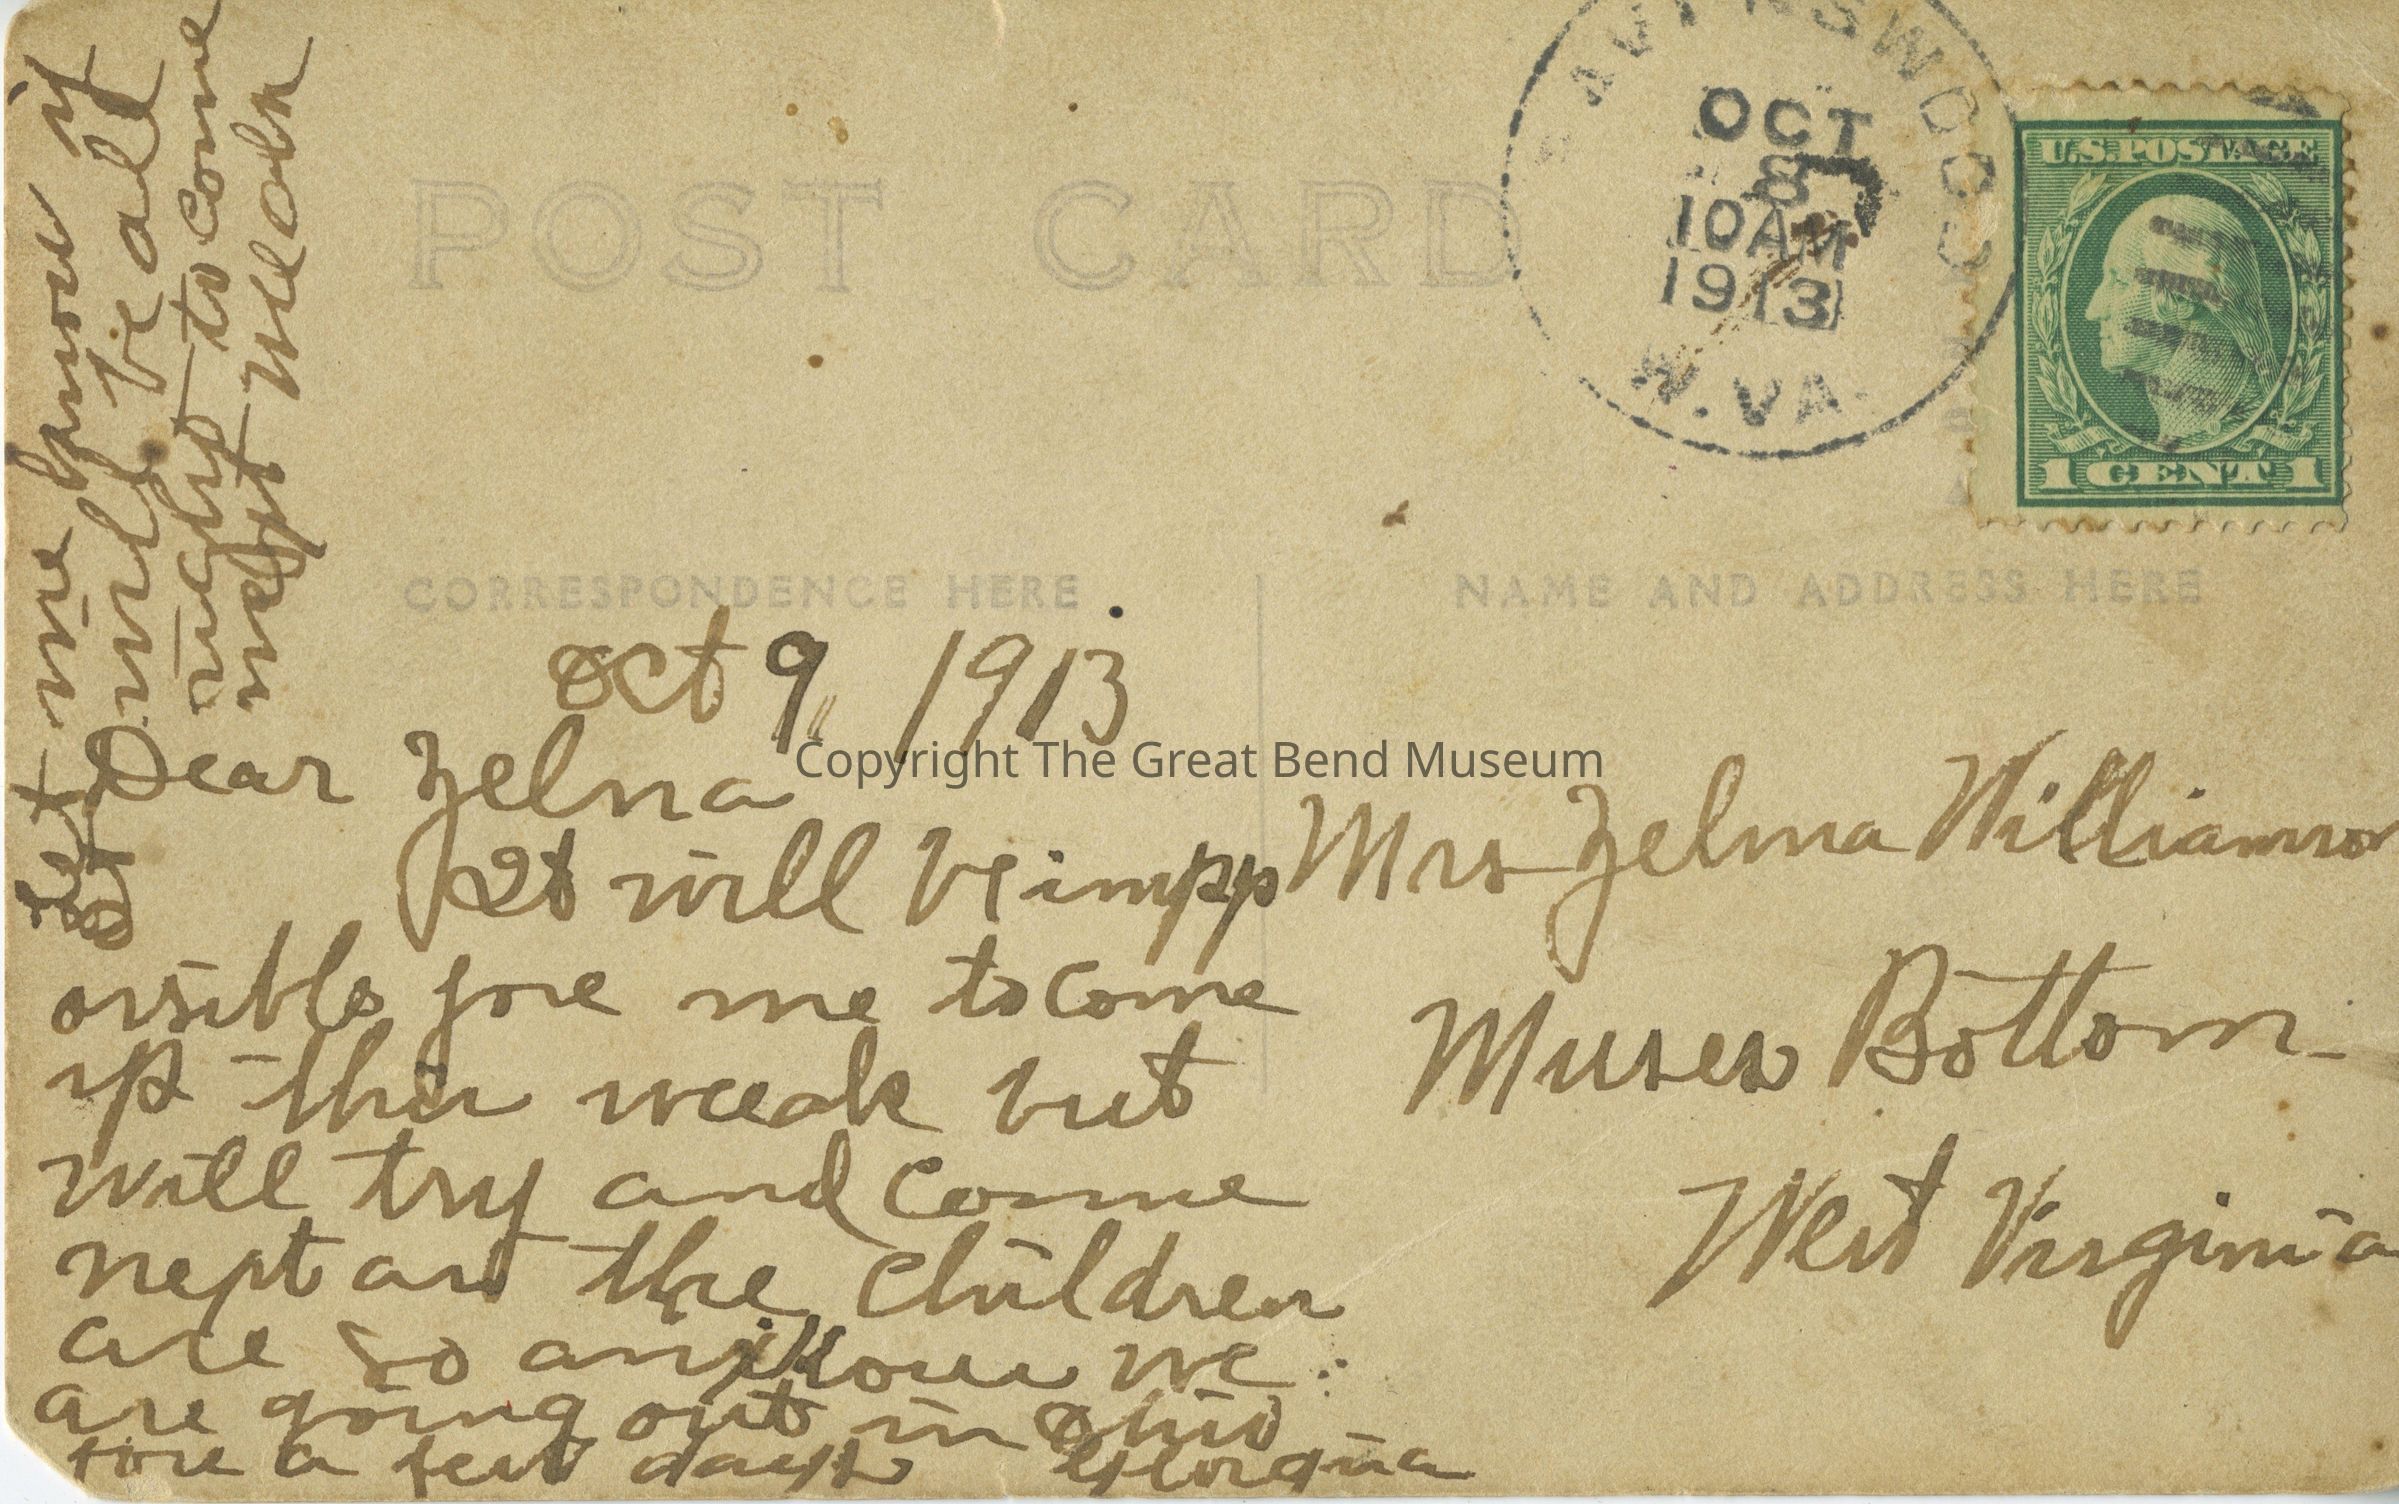 POST CARD
RAVENSWOOD
OCT
8
10AM
1913
W.VA.
U.S. POSTAGE
1 CENT 1
CORRESPONDENCE HERE
NAME AND ADDRESS HERE
oct 9 1913
Dear Zelma
It will be impp
ossible fore me to come
up this weeak but
will try and come
next as the children
are so anxious we
are going out in Ohio
fore a few days Georgia
Let me know if
it will be all
right to come
next weeak
Mrs Zelma Williamson
Muses Bottom
West Virginia
Copyright The Great Bend Museum